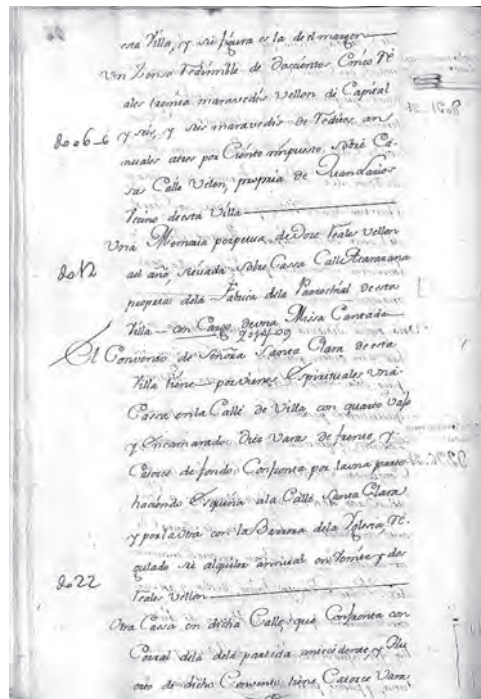 esta Villa, y su figura es la del margen
Un Zenso Redimible de Doscientos Cinco Re
ales treinta maravedis vellon de Capital
8006-6 y seis, y seis maravedis de Reditos an
nuales atres por Ciento ympuesto, sobre Ca-
sas Calle Velen, propria de Juan
Vecino de esta Villa
Una Memoria perpetua de Doze Reales Vellon
8012 al año, situada sobre Cassa Calle Atarazana
propria dela Fabrica dela Parrochial de esta
Villa con Cargo de una Missa Cantada
El Convento de Señora Santa Clara de esta
Villa tiene por vienes Espirituales Una
Cassa en la Calle de Villa, con quarto vajo
y Encamarado Diez Varas de frente, y
Catorce de fondo Confronta por la una parte
haciendo Esquina ala Calle Santa Clara
y por la otra con la dela Yglesia, Re-
gulado su alquiler annual en treinta y dos
8022 Reales Vellon
Otra Cassa en dicha Calle, que Confronta con
Corral dela dela partida antecedente, y
de dicho Convento, tiene Catorce Varas